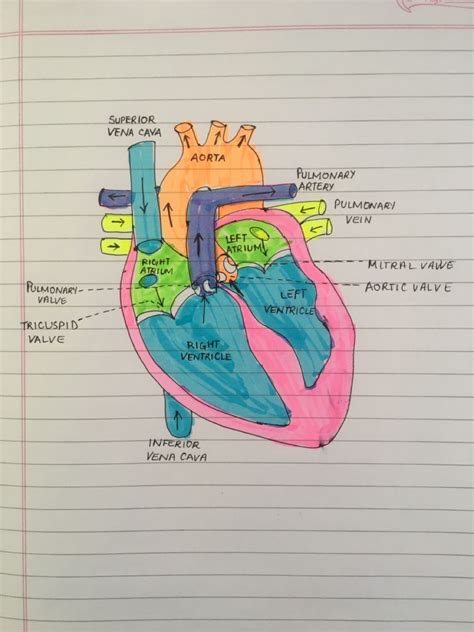 SUPERIOR
VENA CAVA
AORTA
PULMONARY
ARTERY
PULMONARY
VEIN
LEFT
ATRIUM
RIGHT
ATRIUM
MITRAL VALVE
AORTIC VALVE
PULMONARY
VALVE
TRICUSPID
VALVE
LEFT
VENTRICLE
RIGHT
VENTRICLE
INFERIOR
VENA CAVA